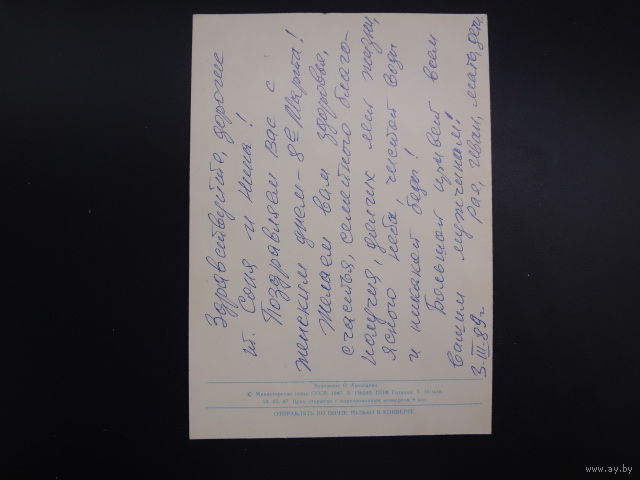 Здравствуйте, дорогие
тт. Соня и Нина!
Поздравляем вас с
женским днем – 8е Марта!
Желаем вам здоровья,
счастья, семейного благо-
получия, долгих лет жизни,
ясного неба, чистой воды
и никакой беды!
Большой привет всем
Вашим мужчинам!
Рая, Иван, мата, дети.
3.III.89г.
Художник
© Министерство связи СССР, 1987.
ОТПРАВЛЯТЬ ПО ПОЧТЕ ТОЛЬКО В КОНВЕРТЕ
www.ay.by